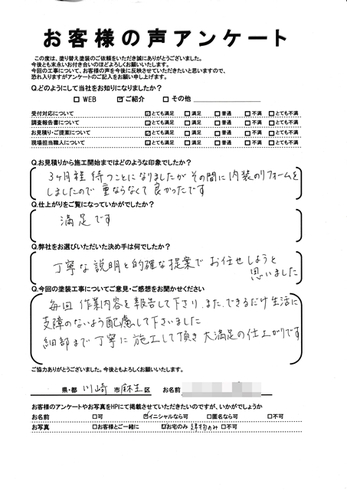 お客様の声アンケート
この度は、塗り替え塗装のご依頼をいただき誠にありがとうございました。
今後とも末永いお付き合いのほどよろしくお願いいたします。
今回の工事について、お客様の声を今後に反映させていただきたいと思いますので、
恐れ入りますがアンケートのご記入をお願い申し上げます。
Q.どのようにして当社をお知りになりましたか?
□WEB ☑ご紹介 □その他
受付対応について ☑とても満足 □満足 □普通 □不満 □とても不満
調査報告書について ☑とても満足 □満足 □普通 □不満 □とても不満
お見積り・ご提案について ☑とても満足 □満足 □普通 □不満 □とても不満
現場担当職人について ☑とても満足 □満足 □普通 □不満 □とても不満
Q.お見積りから施工開始まではどのような印象でしたか?
3ヶ月程 待つことになりましたが その間に 内装のリフォームを
しましたので 重ならなくて 良かったです
Q.仕上がりをご覧になっていかがでしたか?
満足です
Q.弊社をお選びいただいた決め手は何でしたか?
丁寧な説明と的確な提案で お任せしようと
思いました
Q.今回の塗装工事についてご意見・ご感想をお聞かせください
毎回 作業内容を報告して下さり、また、できるだけ生活に
支障のないよう配慮して下さいました
細部まで丁寧に施工して頂き 大満足の仕上がりです
ご協力ありがとうございました。今後ともよろしくお願いいたします。
県・都 川崎 市 麻生 区 お名前
お客様のアンケートやお写真をHPにて掲載させていただきたいのですが、いかがでしょうか
お名前 □可 ☑イニシャルなら可 □匿名なら可 □不可
お写真 □お客様とご一緒に ☑お宅のみ 建物のみ □不可